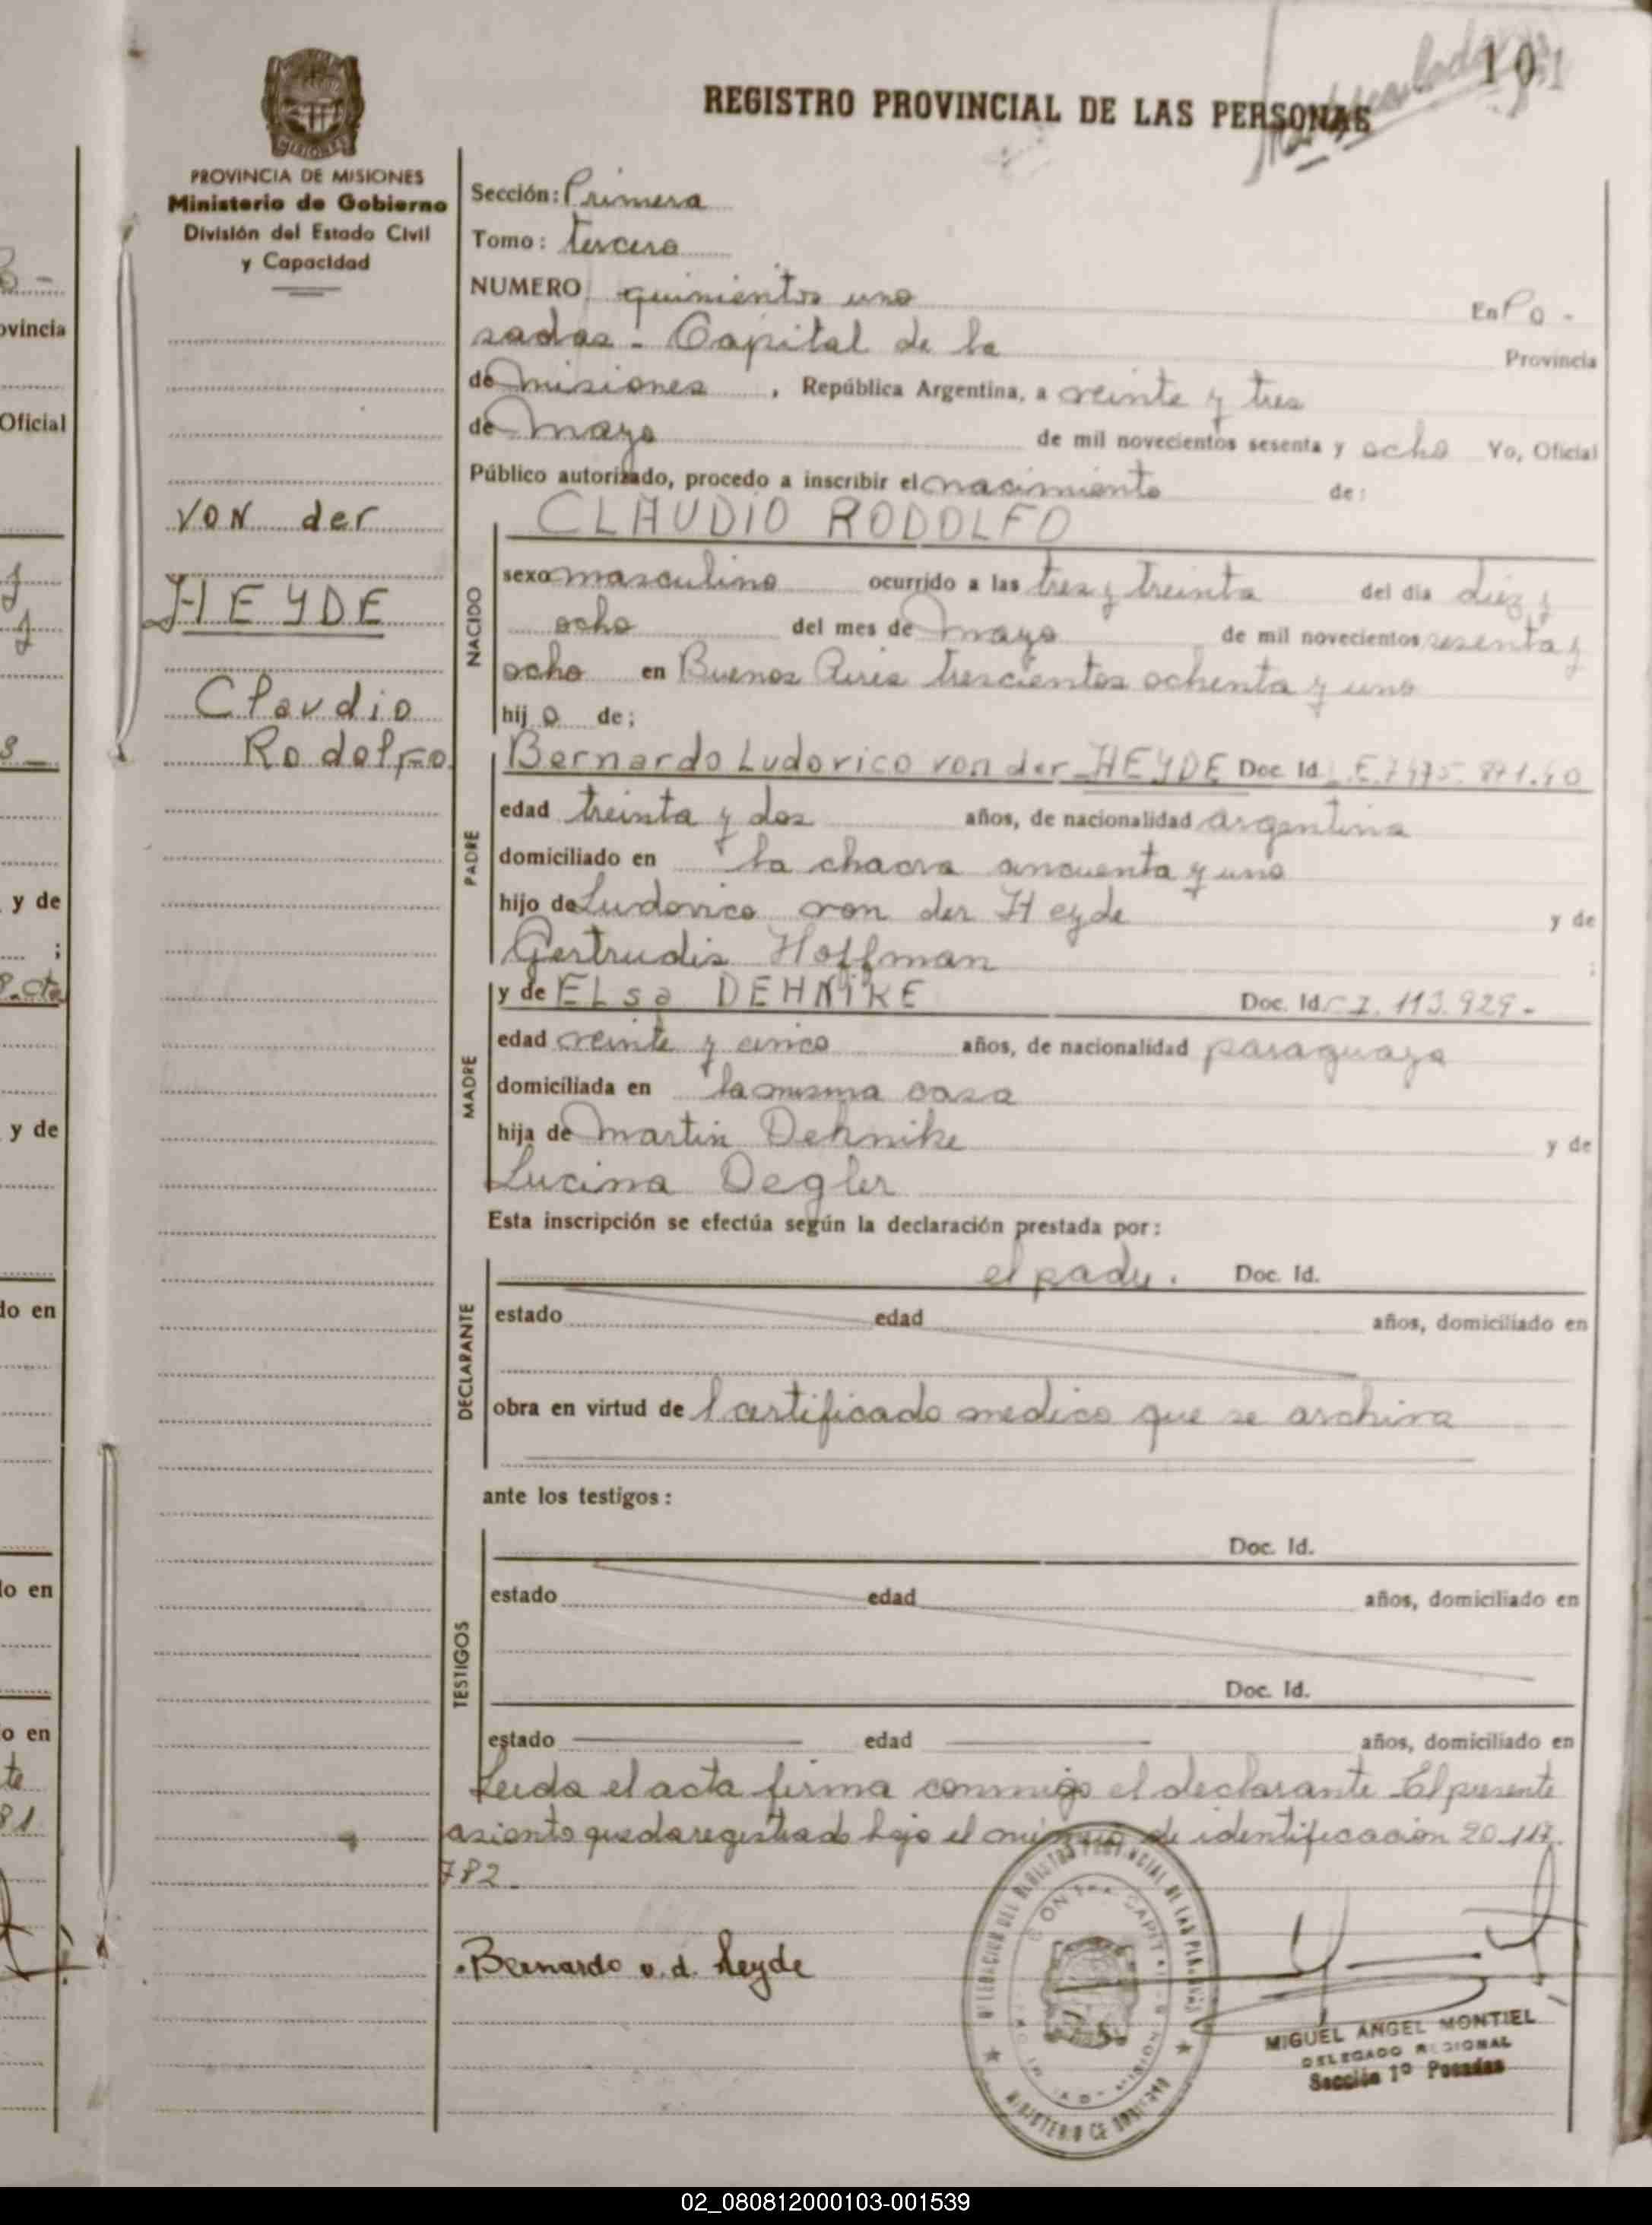 REGISTRO PROVINCIAL DE LAS PERSONAS
PROVINCIA DE MISIONES
Ministerio de Gobierno
División del Estado Civil
y Capacidad
VON der
HEYDE
Claudio
Rodolfo
Sección: Primera
Tomo: tercero
NUMERO quinientos uno En Po-
sadas - Capital de la Provincia
de misiones, República Argentina, a veinte y tres
de mayo de mil novecientos sesenta y ocho Yo, Oficial
Público autorizado, procedo a inscribir el nacimiento de:
CLAUDIO RODOLFO
NACIDO
sexo masculino ocurrido a las tres y treinta del día diez y
ocho del mes de mayo de mil novecientos sesenta y
ocho en Buenos Aires trescientos ochenta y uno
hijo de;
PADRE
Bernardo Ludovico von der HEYDE Doc. Id.
edad treinta y dos años, de nacionalidad argentina
domiciliado en la chacra cincuenta y uno
hijo de Ludovico von der Heyde y de
Gertrudis Hoffman ;
MADRE
y de Elsa DEHNIKE Doc. Id. 113.929-
edad veinte y cinco años, de nacionalidad paraguaya
domiciliada en la misma casa
hija de Martin Dehnike y de
Lucina Degler
Esta inscripción se efectúa según la declaración prestada por:
DECLARANTE
el padre. Doc. Id.
estado edad años, domiciliado en
obra en virtud del certificado medico que se archiva
ante los testigos:
TESTIGOS
Doc. Id.
estado edad años, domiciliado en
Doc. Id.
estado edad años, domiciliado en
Leida el acta firma conmigo el declarante. El presente
asiento queda registrado bajo el número de identificación 20.117.
782.
Bernardo v. d. Heyde
MIGUEL ANGEL MONTIEL
DELEGADO REGIONAL
Sección 1º Posadas
02_080812000103-001539